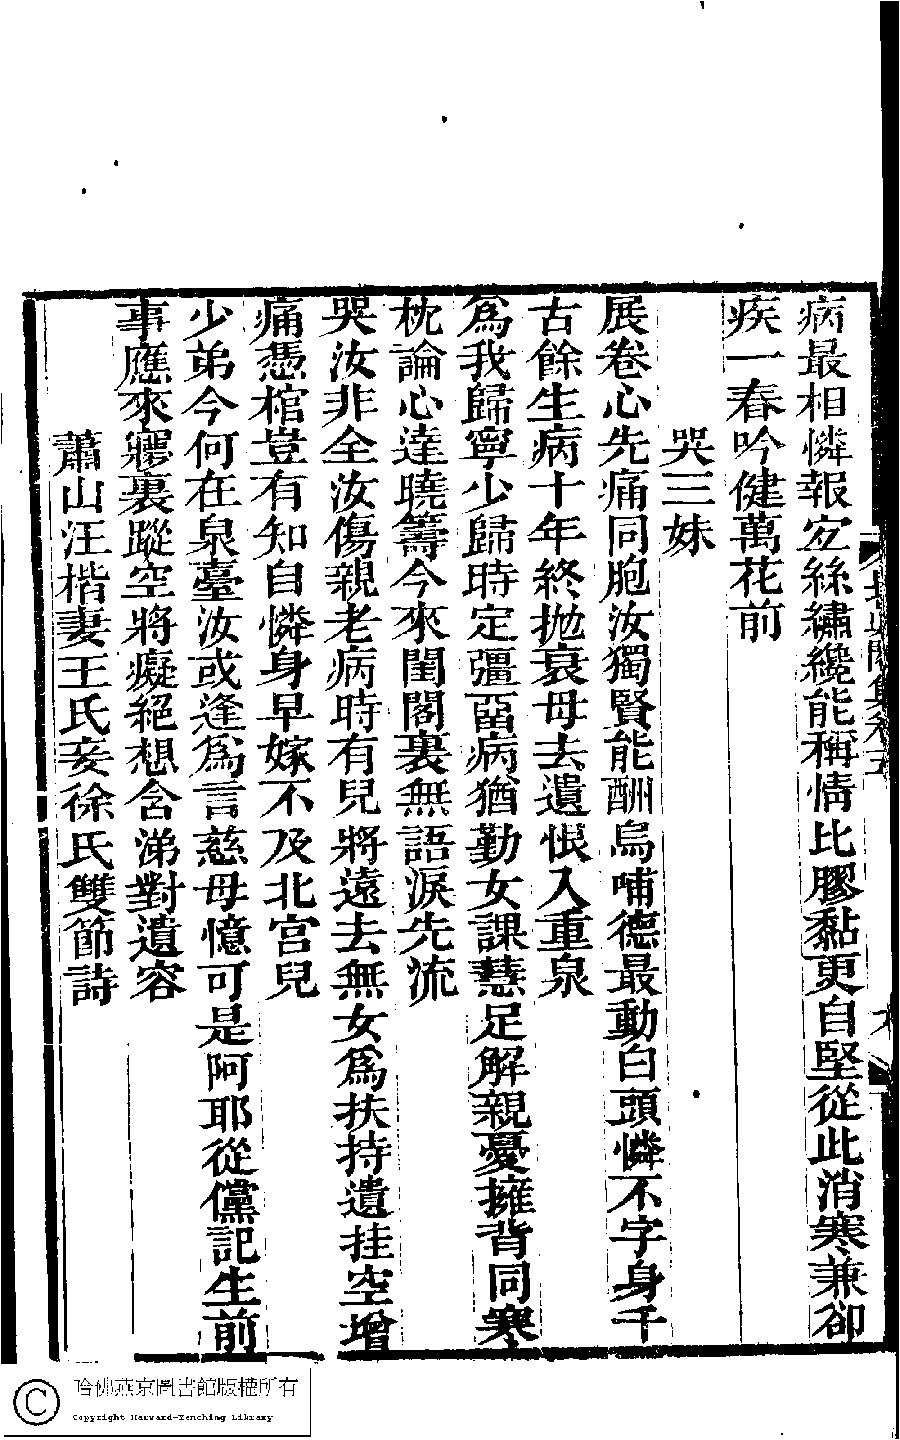 病最相憐報宓絲繡纔能稱情比膠黏更自堅從此消寒兼卻
疾一春吟健萬花前
哭三妹
展卷心先痛同胞汝獨賢能酬烏哺德最動白頭憐不字身千
古餘生病十年終拋衰母去遺恨入重泉
為我歸寧少歸時定彊畱病猶勤女課慧足解親憂擁背同寒
枕論心達曉籌今來閨閣裏無語淚先流
哭汝非全汝傷親老病時有兒將遠去無女為扶持遺挂空增
痛憑棺豈有知自憐身早嫁不及北宮兒
少弟今何在泉臺汝或逢為言慈母憶可是阿耶從儻記生前
事應來寢裏蹤空將癡絕想含涕對遺容
蕭山汪楷妻王氏妾徐氏雙節詩
集卷五
哈佛燕京圖書館版權所有
Copyright Harvard-Yenching Library